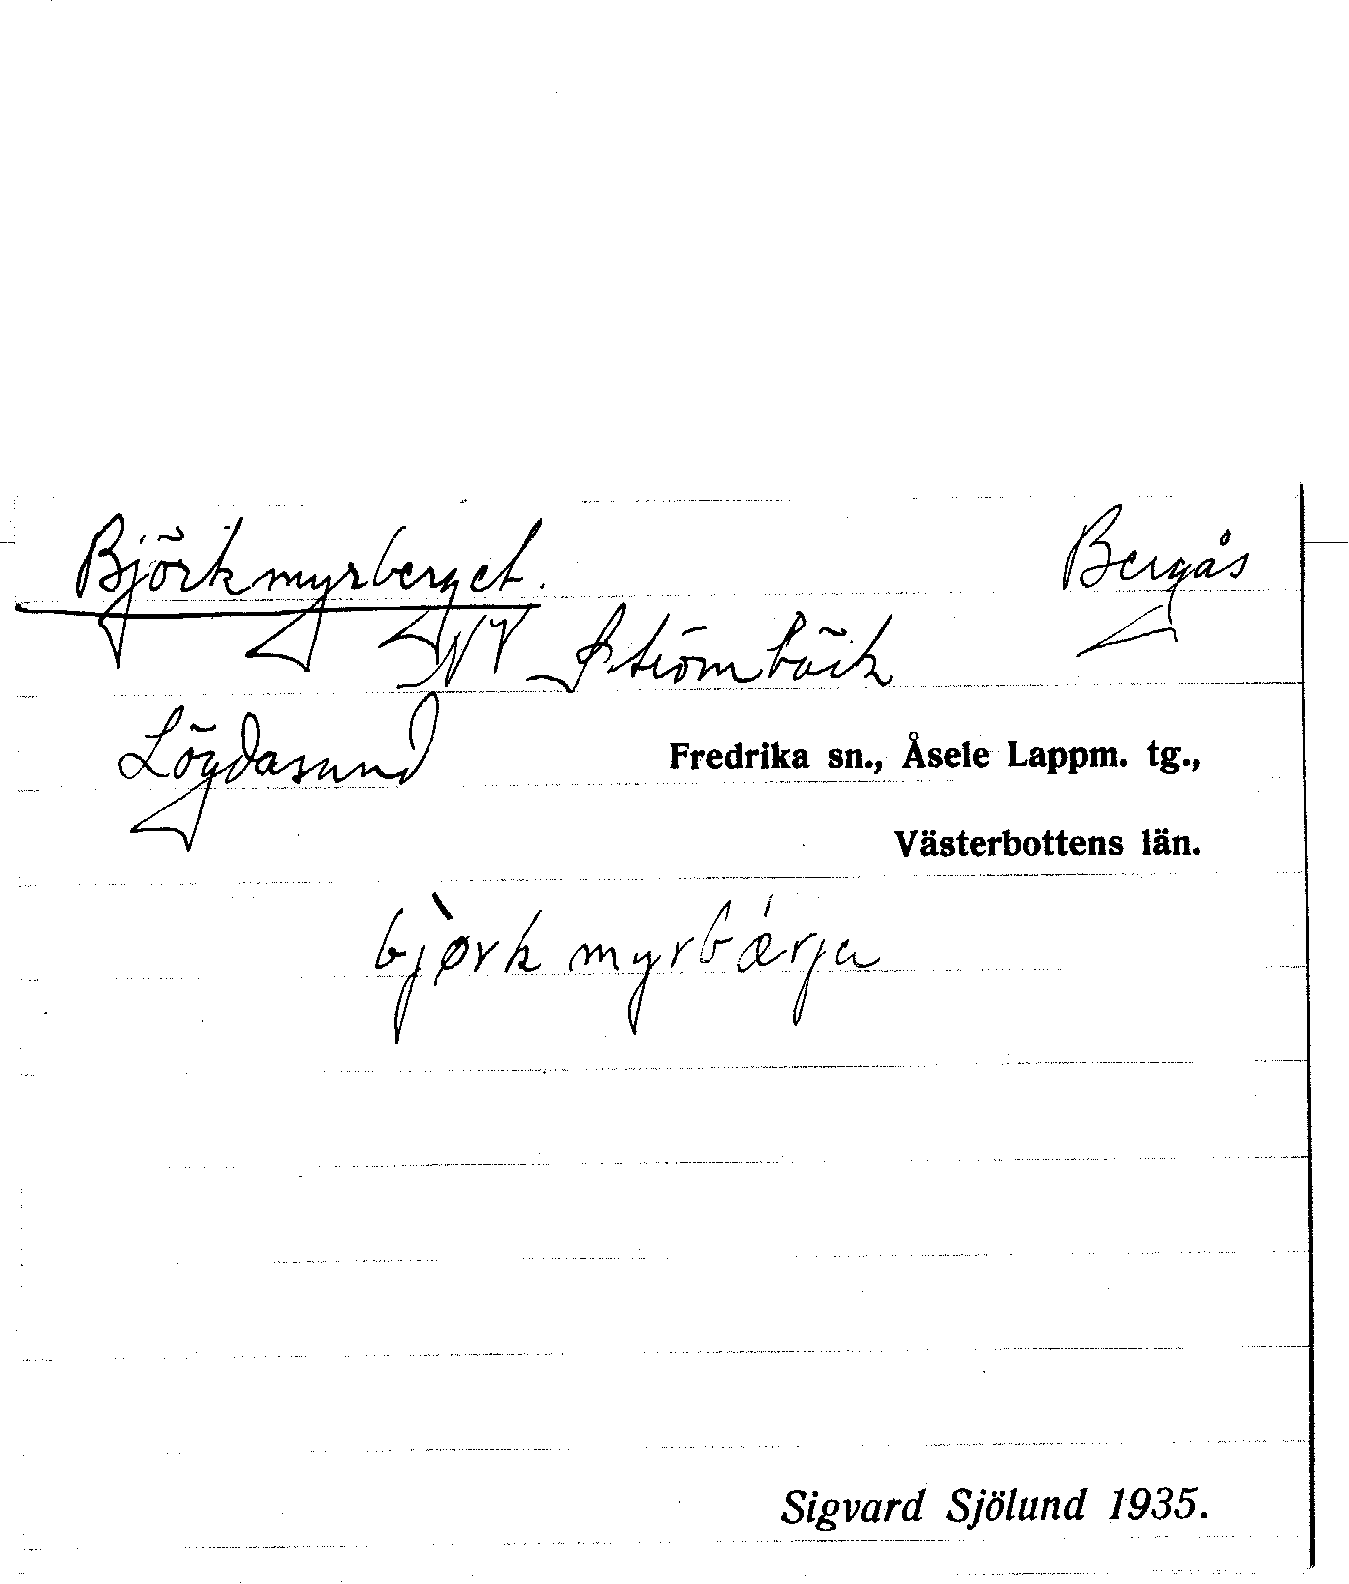 Björkmyrberget. Bergås
NV Strömbäck
Lögdasund Fredrika sn., Åsele Lappm. tg.,
Västerbottens län.
bjø̀rkmyrbǽrja
Sigvard Sjölund 1935.